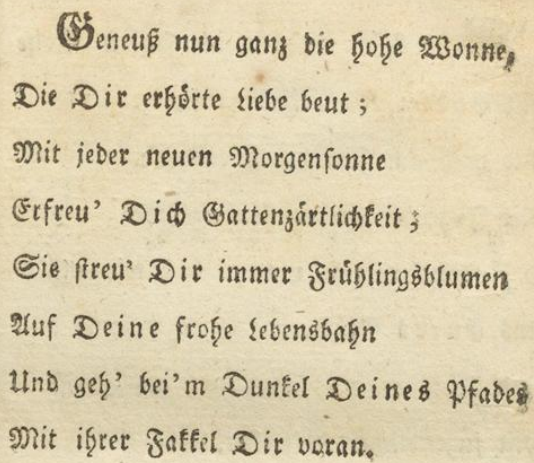 Geneuß nun ganz die hohe Wonne,
Die Dir erhörte Liebe beut;
Mit jeder neuen Morgensonne
Erfreu' Dich Gattenzärtlichkeit;
Sie streu' Dir immer Frühlingsblumen
Auf Deine frohe Lebensbahn
Und geh' bei'm Dunkel Deines Pfades
Mit ihrer Fakkel Dir voran.